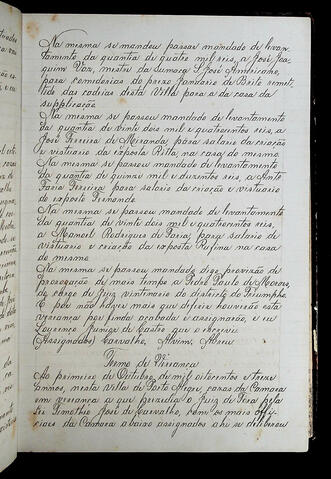 Na mesma se mandou passar mandado de levan-
tamento da quantia de quatro mil reis, a José Joa-
quim Vaz, mestre da Sumaca S. José Americano,
para comedorias do prezo Januario de Brito remet-
tido das cadias desta Villa para a da casa da
supplicação.
Na mesma se passou mandado de levantamento
da quantia de vinte dois mil e quatrocentos reis, a
José Pereira de Miranda para salario da criação
e vistuario da exposta Ritta, na casa do mesmo.
Na mesma se passou mandado de levantamento
da quantia de quinze mil e duzentos reis, a Anto
Faria Pereira para salario da criação e vistuario
do exposto
Na mesma se passou mandado de levantamento
da quantia de vinte dois mil e quatrocentos reis,
a Manoel Rodrigues de Faria, para salario de
vistuario e criação da exposta Rufina na casa
do mesmo
Na mesma se passou mandado digo provizão de
prorogação de mais tempo a Pedro Paulo de Moraes,
do cargo de Juiz vintenario do districto do Triumpho.
E por não haver mais que deferir houverão esta
vereança por finda acabada e assignarão, e eu
Lourenço Junior de Castro que o escrevi
(Assignados) Carvalho, Alvim, Abreu
Termo de Vereança
Ao primeiro de Outubro de mil oitocentos e treze
annos, nesta Villa de Porto Alegre, casas da Camara
em vereança a que prezidio o Juiz de Fóra pela
Lei Timotheo José de Carvalho, com os mais offi-
ciaes da Camara abaixo assignados ahi se deliberou